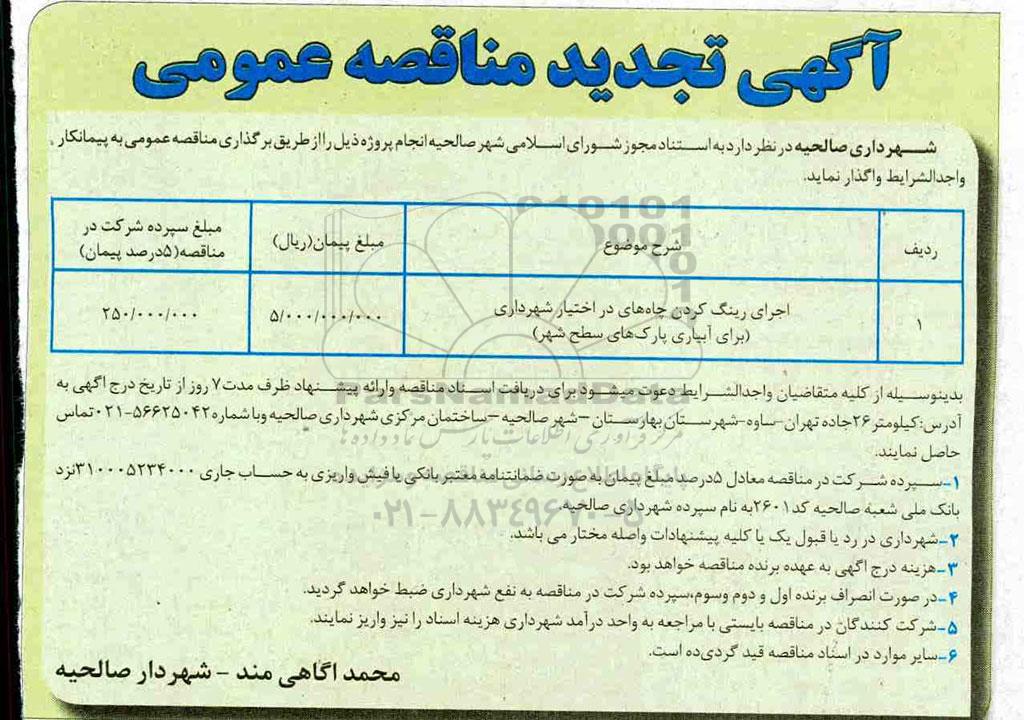 آگهی تجدید مناقصه عمومی
شهرداری صالحیه در نظر دارد به استناد مجوز شورای اسلامی شهر صالحیه انجام پروژه ذیل را از طریق برگذاری مناقصه عمومی به پیمانکار
واجدالشرایط واگذار نماید.
ردیف شرح موضوع مبلغ پیمان(ریال) مبلغ سپرده شرکت در
مناقصه(۵درصد پیمان)
۱ اجرای رینگ کردن چاه‌های در اختیار شهرداری ۵/۰۰۰/۰۰۰/۰۰۰ ۲۵۰/۰۰۰/۰۰۰
(برای آبیاری پارک‌های سطح شهر)
بدینوسیله از کلیه متقاضیان واجدالشرایط دعوت میشود برای دریافت اسناد مناقصه وارائه پیشنهاد ظرف مدت۷ روز از تاریخ درج اگهی به
آدرس:کیلومتر۲۶جاده تهران-ساوه-شهرستان بهارستان –شهر صالحیه –ساختمان مرکزی شهرداری صالحیه وبا شماره ۵۶۶۲۵۰۴۲-۰۲۱تماس
حاصل نمایند.
۱-سپرده شرکت در مناقصه معادل ۵درصد مبلغ پیمان به صورت ضمانتنامه معتبر بانکی یا فیش واریزی به حساب جاری ۳۱۰۰۰۵۲۳۴۰۰۰نزد
بانک ملی شعبه صالحیه کد ۲۶۰۱به نام سپرده شهرداری صالحیه.
۲-شهرداری در رد یا قبول یک یا کلیه پیشنهادات واصله مختار می باشد.
۳-هزینه درج اگهی به عهده برنده مناقصه خواهد بود.
۴-در صورت انصراف برنده اول و دوم وسوم،سپرده شرکت در مناقصه به نفع شهرداری ضبط خواهد گردید.
۵-شرکت کنندگان در مناقصه بایستی با مراجعه به واحد درآمد شهرداری هزینه اسناد را نیز واریز نمایند.
۶-سایر موارد در اسناد مناقصه قید گردی‌ده است.
محمد اگاهی مند - شهردار صالحیه
ParsNamadData
مرکز فرآوری اطلاعات پارس نماد داده ها
۰۲۱-۸۸۳۴۹۶۷۰-۵